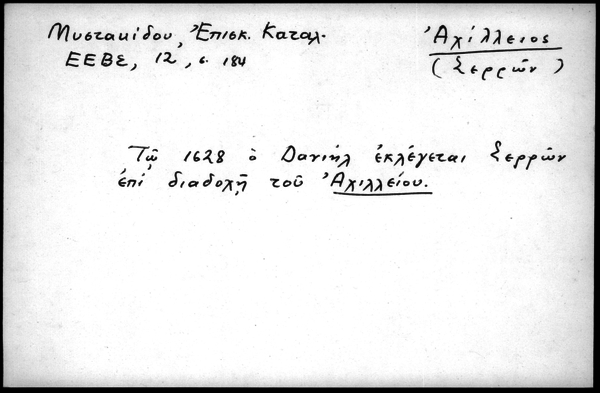 Μυστακίδου, Ἐπισκ. Καταλ.
ΕΕΒΣ, 12, σ. 184
Ἀχίλλειος
(Σερρῶν)
Τῷ 1628 ὁ Δανιὴλ ἐκλέγεται Σερρῶν
ἐπὶ διαδοχῇ τοῦ Ἀχιλλείου.